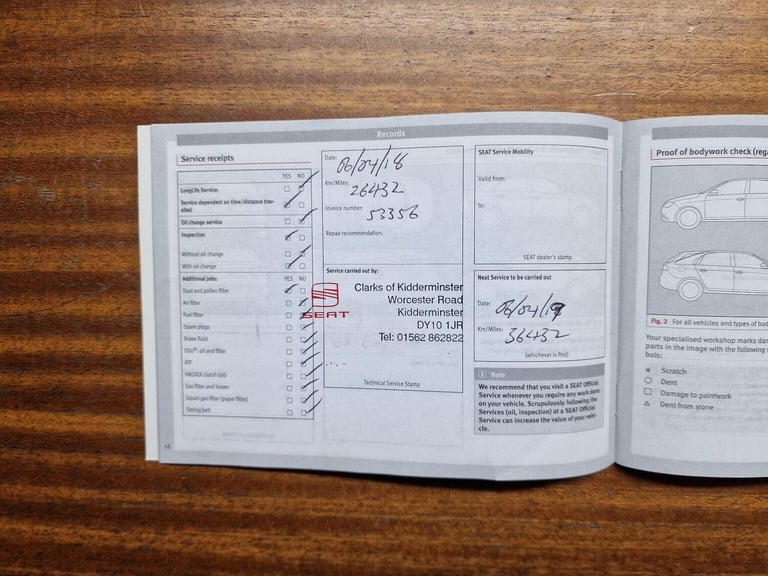 Records
Service receipts
YES NO
LongLife Service:
Service dependent on time/distance trav-
elled
Oil change service
Inspection
Without oil change
With oil change
Additional jobs: YES NO
Dust and pollen filter
Air filter
Fuel filter
Spark plugs
Brake fluid
DSG®: oil and filter
ATF
HALDEX clutch (oil)
Gas filter and hoses
Liquid gas filter (paper filter)
Timing belt
18
Date: 06/04/18
Km/Miles: 26432
Invoice number: 53356
Repair recommendation:
Service carried out by:
SEAT
Clarks of Kidderminster
Worcester Road
Kidderminster
DY10 1JR
Tel: 01562 862822
Technical Service Stamp
SEAT Service Mobility
Valid from:
to:
SEAT dealer's stamp
Next Service to be carried out
Date: 06/04/19
Km/Miles: 36432
(whichever is first)
Note
We recommend that you visit a SEAT Official
Service whenever you require any work done
on your vehicle. Scrupulously following the
Services (oil, inspection) at a SEAT Official
Service can increase the value of your vehi-
cle.
Proof of bodywork check (reg
Fig. 2 For all vehicles and types of bod
Your specialised workshop marks dam
parts in the image with the following s
bols:
× Scratch
○ Dent
□ Damage to paintwork
△ Dent from stone